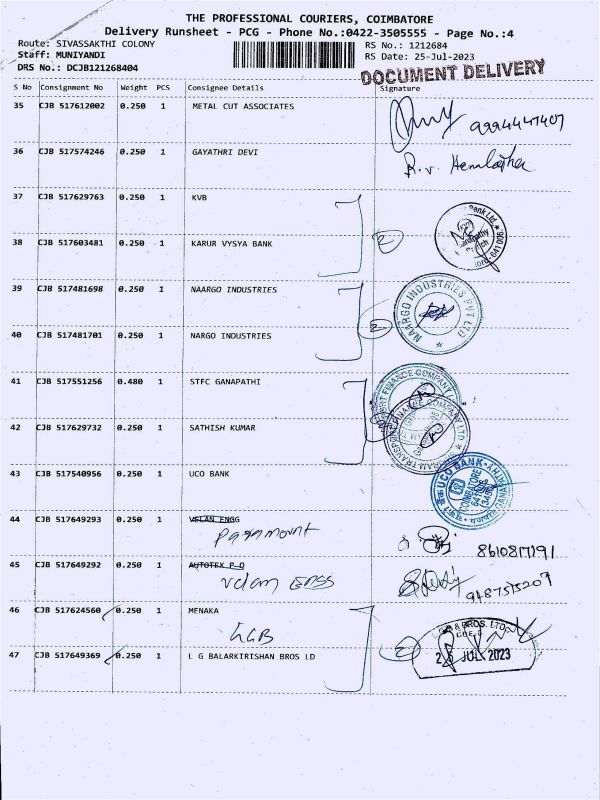 THE PROFESSIONAL COURIERS, COIMBATORE
Delivery Runsheet - PCG - Phone No.:0422-3505555 - Page No.:4
Route: SIVASSAKTHI COLONY RS No.: 1212684
Staff: MUNIYANDI RS Date: 25-Jul-2023
DRS No.: DCJB121268404
DOCUMENT DELIVERY
S No Consignment No Weight PCS Consignee Details Signature
35 CJB 517612002 0.250 1 METAL CUT ASSOCIATES
9994447407
36 CJB 517574246 0.250 1 GAYATHRI DEVI
R.v. Hemlatha
37 CJB 517629763 0.250 1 KVB
38 CJB 517603481 0.250 1 KARUR VYSYA BANK
2
39 CJB 517481698 0.250 1 NAARGO INDUSTRIES
NAARGO INDUSTRIES PVT LTD
40 CJB 517481701 0.250 1 NARGO INDUSTRIES
2
41 CJB 517551256 0.480 1 STFC GANAPATHI
42 CJB 517629732 0.250 1 SATHISH KUMAR
43 CJB 517540956 0.250 1 UCO BANK
UCO BANK
COIMBATORE
44 CJB 517649293 0.250 1 VELAN ENGG
Paramount
8610817191
45 CJB 517649292 0.250 1 AUTOTEX P D
Velan ENGG
9487575207
46 CJB 517624560 0.250 1 MENAKA
LGB
& BROS. LTD
47 CJB 517649369 0.250 1 L G BALARKIRISHAN BROS LD
2
JUL 2023